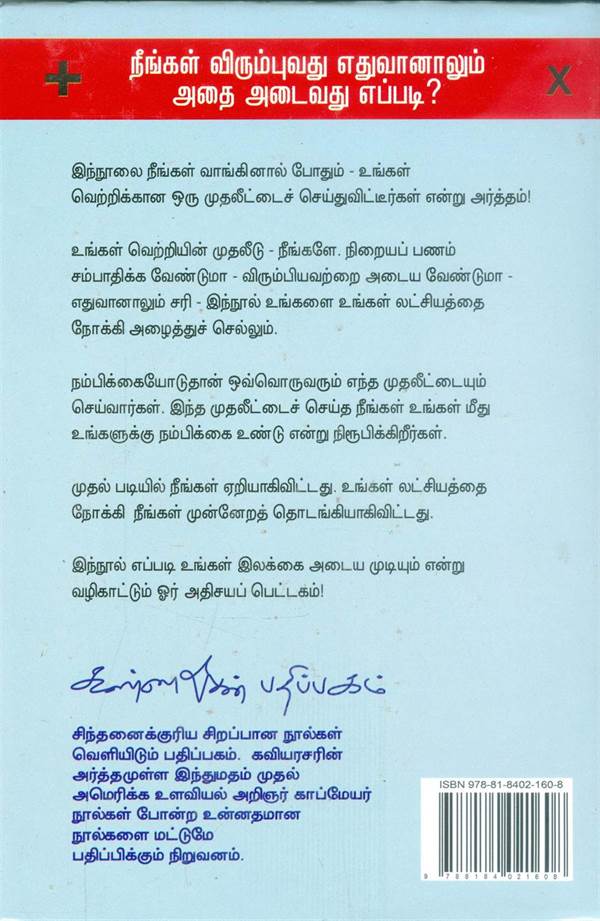 நீங்கள் விரும்புவது எதுவானாலும்
அதை அடைவது எப்படி?
+
x
இந்நூலை நீங்கள் வாங்கினால் போதும் - உங்கள்
வெற்றிக்கான ஒரு முதலீட்டைச் செய்துவிட்டீர்கள் என்று அர்த்தம்!
உங்கள் வெற்றியின் முதலீடு - நீங்களே. நிறையப் பணம்
சம்பாதிக்க வேண்டுமா - விரும்பியவற்றை அடைய வேண்டுமா -
எதுவானாலும் சரி - இந்நூல் உங்களை உங்கள் லட்சியத்தை
நோக்கி அழைத்துச் செல்லும்.
நம்பிக்கையோடுதான் ஒவ்வொருவரும் எந்த முதலீட்டையும்
செய்வார்கள். இந்த முதலீட்டைச் செய்த நீங்கள் உங்கள் மீது
உங்களுக்கு நம்பிக்கை உண்டு என்று நிரூபிக்கிறீர்கள்.
முதல் படியில் நீங்கள் ஏறியாகிவிட்டது. உங்கள் லட்சியத்தை
நோக்கி நீங்கள் முன்னேறத் தொடங்கியாகிவிட்டது.
இந்நூல் எப்படி உங்கள் இலக்கை அடைய முடியும் என்று
வழிகாட்டும் ஓர் அதிசயப் பெட்டகம்!
கண்ணதாசன் பதிப்பகம்
சிந்தனைக்குரிய சிறப்பான நூல்கள்
வெளியிடும் பதிப்பகம். கவியரசரின்
அர்த்தமுள்ள இந்துமதம் முதல்
அமெரிக்க உளவியல் அறிஞர் காப்மேயர்
நூல்கள் போன்ற உன்னதமான
நூல்களை மட்டுமே
பதிப்பிக்கும் நிறுவனம்.
ISBN 978-81-8402-160-8
9 788184 021608